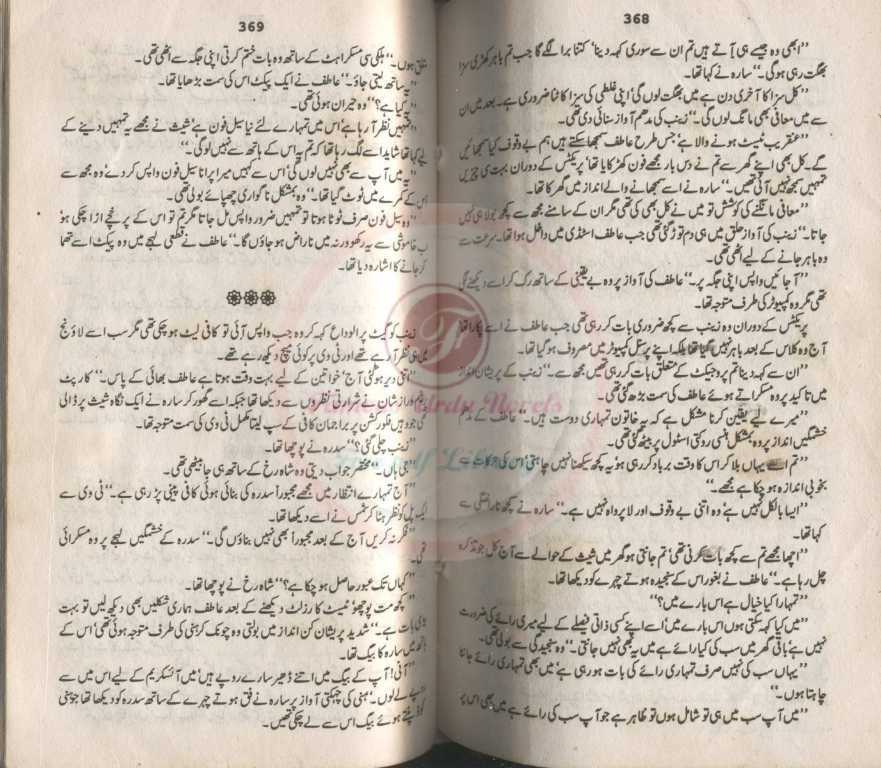 368
”ابھی وہ جیسے ہی آتے ہیں تم ان سے سوری کہہ دینا‘ کتنا برا لگے گا جب تم باہر کھڑی سزا
بھگت رہی ہو گی۔“ سارہ نے کہا تھا۔
”کل سزا کا آخری دن ہے میں بھگت لوں گی‘ اپنی غلطی کی سزا کاٹنا ضروری ہے۔ بعد میں ان
سے میں معافی بھی مانگ لوں گی۔“ زینب کی مدھم آواز سنائی دی تھی۔
”عنقریب ٹیسٹ ہونے والا ہے‘ جس طرح عاطف سمجھا سکتے ہیں ہم بے وقوف کیا سمجھائیں
گے۔ کل بھی اپنے گھر سے تم نے دس بار مجھے فون کھڑکایا تھا‘ پریکٹس کے دوران بہت سی چیزیں
تمہیں سمجھ نہیں آئی تھیں۔“ سارہ نے اسے سمجھانے والے انداز میں گھرکا تھا۔
”معافی مانگنے کی کوشش تو میں نے کل بھی کی تھی مگر ان کے سامنے مجھ سے کچھ بولا ہی نہیں
جاتا۔“ زینب کی آواز حلق میں ہی دم توڑ گئی تھی جب عاطف اسٹڈی میں داخل ہوا تھا۔ سرعت سے
وہ باہر جانے کے لیے اٹھی تھی۔
”آ جائیں واپس اپنی جگہ پر۔“ عاطف کی آواز پر وہ بے یقینی کے ساتھ رک کر اسے دیکھنے لگی
تھی مگر وہ کمپیوٹر کی طرف متوجہ تھا۔
پریکٹس کے دوران وہ زینب سے کچھ ضروری بات کر رہی تھی جب عاطف نے اسے پکارا تھا
آج وہ کلاس کے بعد باہر نہیں گیا تھا بلکہ اپنے پرسنل کمپیوٹر میں مصروف ہو گیا تھا۔
”ان سے کہہ دینا تم پروجیکٹ کے متعلق بات کر رہی تھیں مجھ سے۔“ زینب کے پریشان انداز
میں تاکید پر وہ مسکراتے ہوئے عاطف کی سمت بڑھ گئی تھی۔
”میرے لیے یقین کرنا مشکل ہے کہ یہ خاتون تمہاری دوست ہیں۔“ عاطف کے مدھم
خشمگیں انداز پر وہ بمشکل ہنسی روکتی اسٹول پر بیٹھ گئی تھی۔
”تم اسے یہاں بلا کر اس کا وقت برباد کر رہی ہو‘ یہ کچھ سیکھنا نہیں چاہتی‘ اس کی
بخوبی اندازہ ہو چکا ہے مجھے۔“
”ایسا بالکل نہیں ہے‘ وہ اتنی بے وقوف اور لاپرواہ نہیں ہے۔“ سارہ نے کچھ ناراضگی سے
کہا تھا۔
”اچھا مجھے تم سے کچھ بات کرنی تھی‘ تم جانتی ہو گھر میں شیث کے حوالے سے آج کل جو تذکرہ
چل رہا ہے۔“ عاطف نے بغور اس کے سنجیدہ ہوتے چہرے کو دیکھا تھا۔
”تمہارا کیا خیال ہے اس بارے میں؟“
”میں کیا کہہ سکتی ہوں اس بارے میں‘ اسے اپنے کسی ذاتی فیصلے کے لیے میری رائے کی ضرورت
نہیں ہے‘ باقی گھر میں سب کی کیا رائے ہے میں یہ بھی نہیں جانتی۔“ وہ سنجیدگی سے بولی تھی۔
”یہاں سب کی نہیں صرف تمہاری رائے کی بات ہو رہی ہے‘ میں بھی تمہاری رائے جاننا
چاہتا ہوں۔“
”میں آپ سب میں ہی تو شامل ہوں تو ظاہر ہے جو آپ سب کی رائے ہے میں بھی اس پر
369
ہوں۔“ ہلکی سی مسکراہٹ کے ساتھ وہ بات ختم کرتی اپنی جگہ سے اٹھی تھی۔
”یہ ساتھ لیتی جاؤ۔“ عاطف نے ایک پیکٹ اس کی سمت بڑھایا تھا۔
”یہ کیا ہے؟“ وہ حیران ہوئی تھی۔
”تمہیں نظر آ رہا ہے‘ اس میں تمہارے لئے نیا سیل فون ہے‘ شیث نے مجھے یہ تمہیں دینے کے
لیے کہا تھا شاید اسے لگ رہا تھا کہ تم یہ اس کے ہاتھ سے نہیں لو گی۔“
”یہ میں آپ سے بھی نہیں لوں گی‘ اس سے کہیں میرا پرانا سیل فون واپس کر دے‘ وہ مجھ سے
اس کے کمرے میں ٹوٹ گیا تھا۔“ وہ بمشکل ناگواری چھپائے بولی تھی۔
”وہ سیل فون صرف ٹوٹا ہوتا تو تمہیں ضرور واپس مل جاتا مگر تم تو اس کے پرخچے اڑا چکی ہو
اب خاموشی سے یہ رکھو ورنہ میں ناراض ہو جاؤں گا۔“ عاطف نے قطعی لہجے میں وہ پیکٹ اسے تھما
کر جانے کا اشارہ دیا تھا۔
زینب کو گیٹ پر الوداع کہہ کر وہ جب واپس آئی تو کافی لیٹ ہو چکی تھی مگر سب اسے لاؤنج
میں ہی نظر آ رہے تھے اور ٹی وی پر کوئی میچ دیکھ رہے تھے۔
”اتنی دیر ہو گئی آج‘ خواتین کے لیے بہت وقت ہوتا ہے عاطف بھائی کے پاس۔“ کارپٹ
شان نے شرارتی نظروں سے دیکھا تھا جبکہ اسے گھور کر سارہ نے ایک نگاہ شیث پر ڈالی
تھی جو وہیں فلور کشن پر براجمان کافی کے سپ لیتا مکمل ٹی وی کی سمت متوجہ تھا۔
”زینب چلی گئی؟“ سدرہ نے پوچھا تھا۔
”جی ہاں۔“ مختصر جواب دیتی وہ شاہ رخ کے ساتھ ہی جا بیٹھی تھی۔
”آج تمہارے انتظار میں مجھے مجبوراً سدرہ کی بنائی ہوئی کافی پینی پڑ رہی ہے۔“ ٹی وی سے
ایک پل کو نظر ہٹا کر شمس نے اسے دیکھا تھا۔
”فکر نہ کریں آج کے بعد مجبوراً بھی نہیں بناؤں گی۔“ سدرہ کے خشمگیں لہجے پر وہ مسکرائی
تھی۔
”کہاں تک عبور حاصل ہو چکا ہے؟“ شاہ رخ نے پوچھا تھا۔
”کچھ مت پوچھو‘ ٹیسٹ کا رزلٹ دیکھنے کے بعد عاطف ہماری شکلیں بھی دیکھ لیں تو بہت
بڑی بات ہے۔“ شدید پریشان کن انداز میں بولتی وہ چونک کر ہنی کی طرف متوجہ ہوئی تھی‘ اس کے
ہاتھ میں سارہ کا بیگ تھا۔
”آنی! آپ کے بیگ میں اتنے ڈھیر سارے روپے ہیں‘ میں آئسکریم کے لیے اس میں سے
لے لوں۔“ ہنی کی چہکتی آواز پر سارہ نے فق ہوتے چہرے کے ساتھ سدرہ کو دیکھا تھا جو ہنی
کو ڈپٹتے ہوئے بیگ اس سے لے چکی تھیں۔